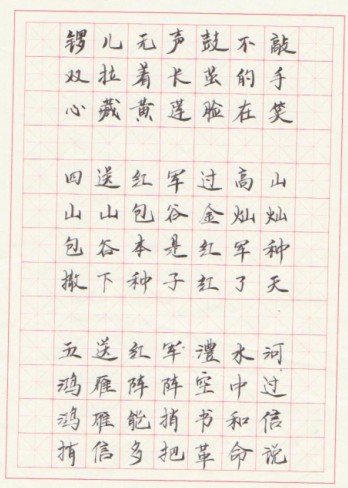 锣儿无声鼓不敲
双拉着长茧的手
心藏黄莲脸在笑
四送红军过高山
山山包谷金灿灿
包谷本是红军种
撒下种子红了天
五送红军澧水河
鸿雁阵阵空中过
鸿雁能捎书和信
捎信多把革命说